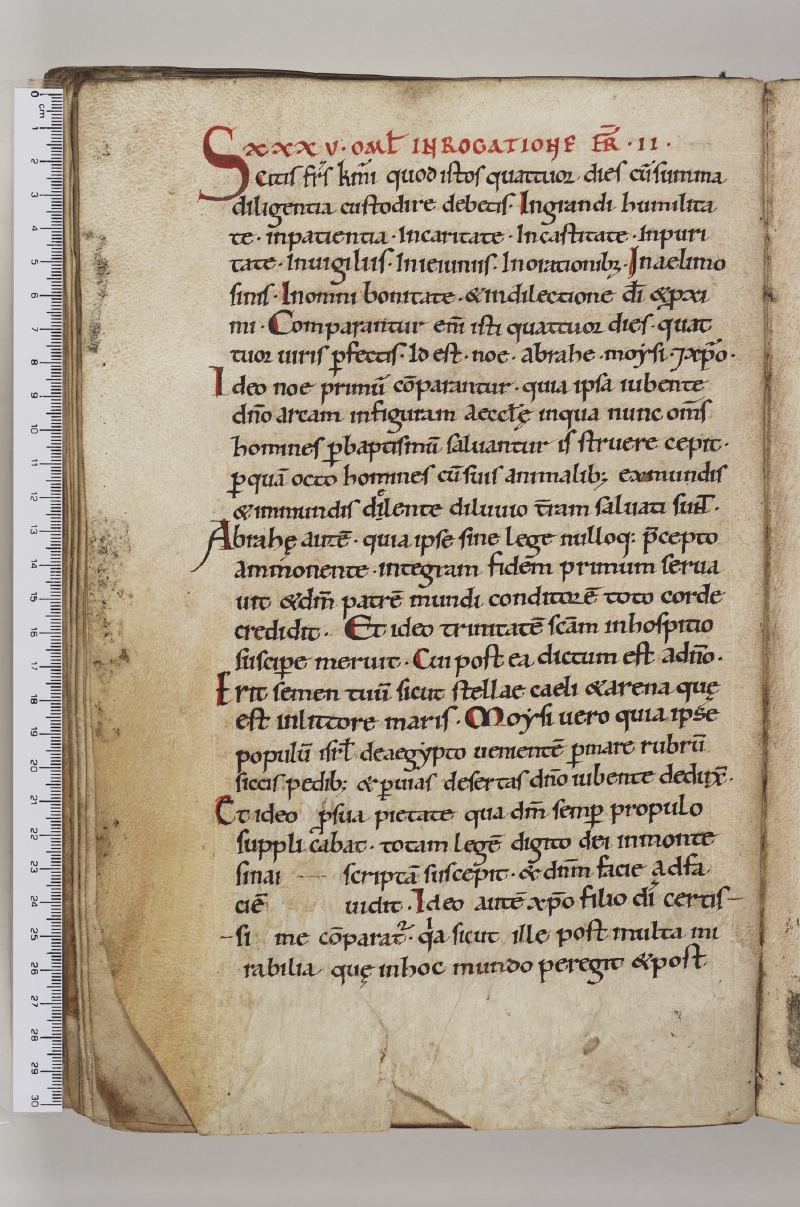 xxxv· om̅l̅ IN ROGATIONE FR̅ ·II·
Scitis fr̅s k̅mi quod istos quattuor dies cu̅ summa
diligentia custodire debetis· Ingrandi humilita
te· inpatientia· Incaritate· Incastitate· Inpuri
tate· Inuigiliis· Inieiuniis· Inorationibꝫ· Inaelimo
sinis· Inomni bonitate· &indilectione d̅i &ꝓxi
mi· Comparantur em̅ isti quattuor dies· quat
tuor uiris ꝑfectis· Id est· noe· abrahe· moysi· ⁊xp̅o·
Ideo noe primu̅ co̅parantur· quia ipsa iubente
dn̅o arcam infiguram aeccl̅ę inqua nunc om̅s
homines ꝑbaptismu̅ saluantur is struere cepit·
ꝑqua̅ octo homines cu̅ suis animalibꝫ exmundis
&immundis dęlente diluuio t̅ram saluati sut̅·
Abrahę aute̅· quia ipse sine lege nulloq: p̅cepto
ammonente· integram fidem primum serua
uit &dm̅ patre̅ mundi conditore̅ toto corde
credidit· Et ideo trinitate̅ sc̅am inhospitio
suscipe meruit· Cui post ea dictum est adn̅o·
Erit semen tuu̅ sicut stellae caeli &arena quę
est inlittore maris· Moysi uero quia ipse
populu̅ isrl̅ deaegypto ueniente̅ ꝑmare rubru̅
siccis pedibꝫ &ꝑuias desertas dn̅o iubente deduxe̅·
Et ideo ꝑsua pietate qua dm̅ semꝑ propulo
supplicabat· totam lege̅ digito dei inmonte
sinai scripta̅ suscepit· & dn̅m facie adfa
cie̅ uidit· Ideo aute̅ xp̅o filio d̅i certis
si me co̅parat᷑· qa sicut ille post multa mi
rabilia quę inhoc mundo peregit &post